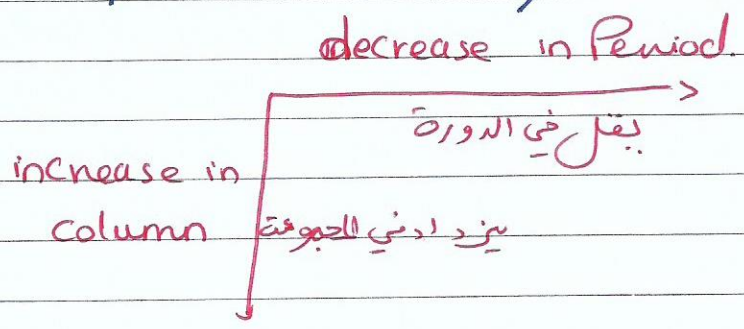 decrease in Period.
يقل في الدورة
increase in
column
يزداد في المجموعة